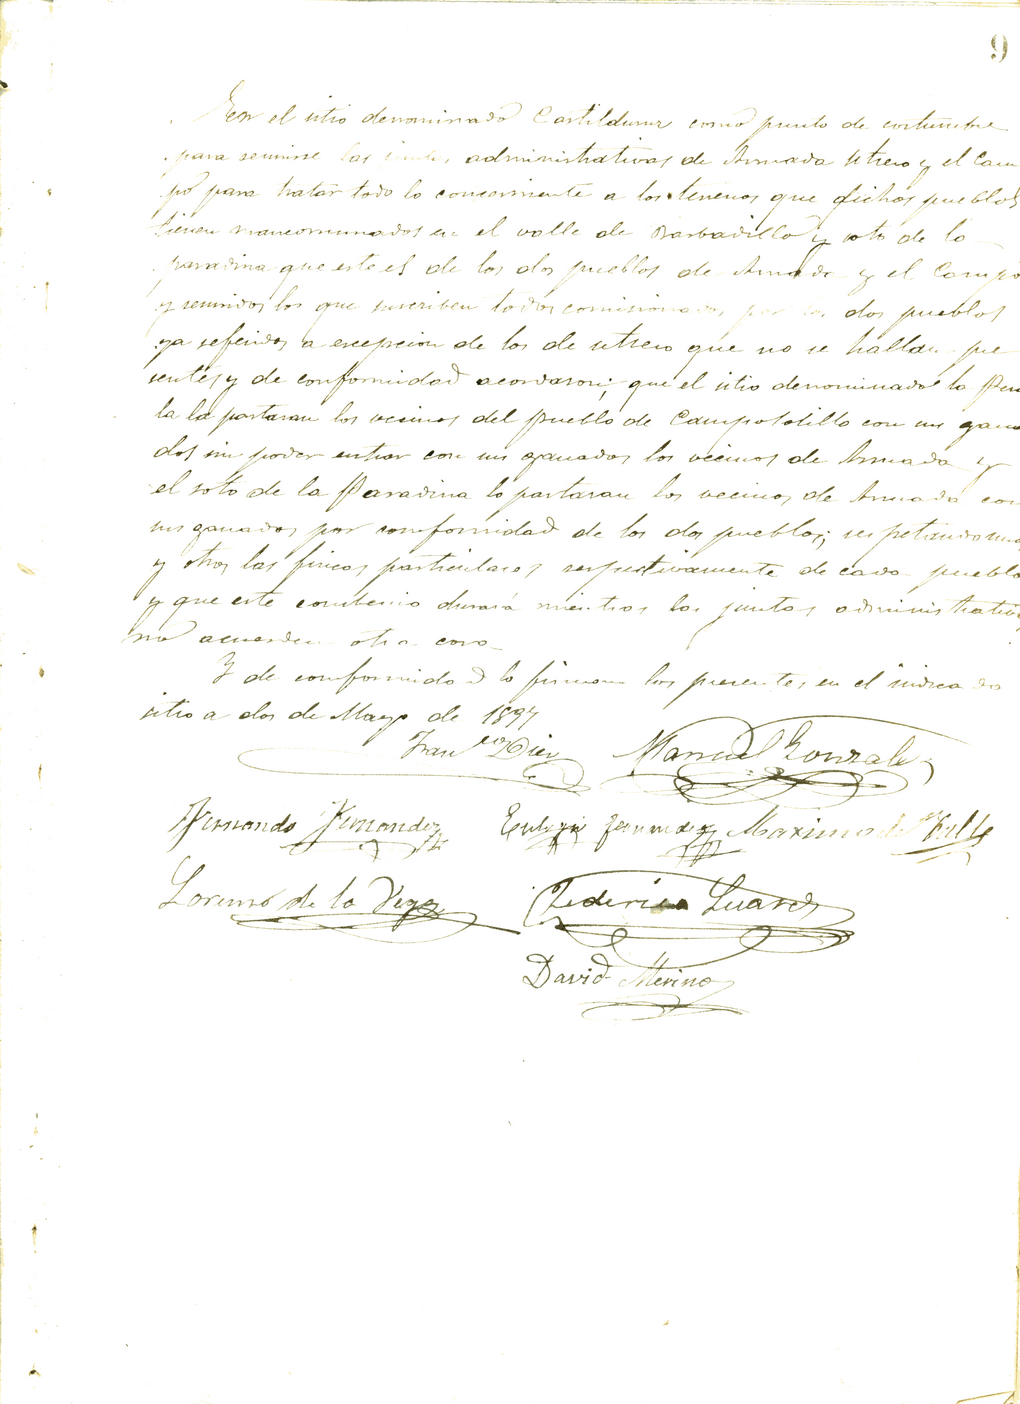 9
En el sitio denominado Castildurur como punto de costumbre
para reunirse las juntas administrativas de Armada Utrero y el Cam
po para tratar todo lo concerniente a los terrenos que dichos pueblos
tienen mancomunados en el valle de Barbadillo y soto de la
paradina que este es de los dos pueblos de Armada y el Campo
y reunidos los que suscriben todos comisionados por los dos pueblos
ya referidos a excepcion de los de utrero que no se hallan pre
sentes y de conformidad acordaron; que el sitio denominado la Peru
la la pastaran los vecinos del pueblo de Camposolillo con sus gana
dos sin poder entrar con sus ganados los vecinos de Armada y
el soto de la Paradina lo pastaran los vecinos de Armada con
sus ganados por conformidad de los dos pueblos; respetando unos
y otros las fincas particulares respectivamente de cada pueblo
y que este combenio durará mientras las juntas administrativas
no acuerden otra cosa
Y de conformidad lo firman los presentes en el indicado
sitio a dos de Mayo de 1897
Fran<sup>co</sup> Diez Manuel Gonzalez
Fernando Fernandez Eulogio Fernandez Maximo del Valle
Lorenzo de la Vega Federico Suarez
David Merino